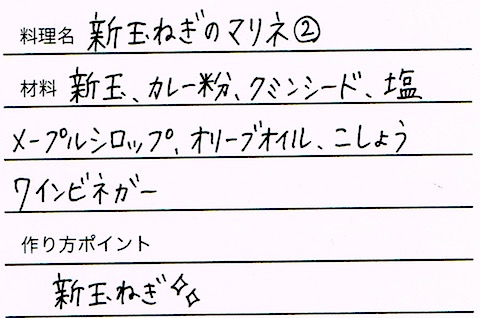 料理名 新玉ねぎのマリネ②
材料 新玉、カレー粉、クミンシード、塩
メープルシロップ、オリーブオイル、こしょう
ワインビネガー
作り方ポイント
新玉ねぎ✨